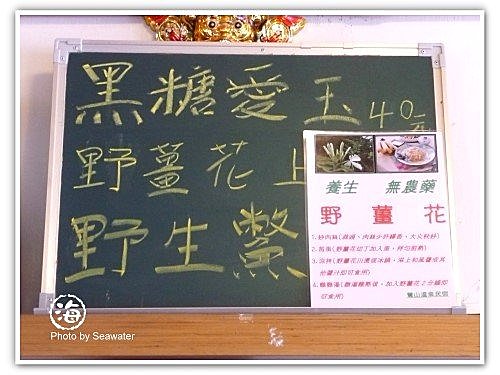 黑糖愛玉40元
野薑花上
野生鱉
養生 無農藥
野薑花
1.炒肉絲(蒜頭、肉絲少許爆香、大火快炒)
2.煎蛋(野薑花切丁加入蛋，拌勻煎熟)
3.涼拌(野薑花川燙後冰鎮，淋上和風醬或其
他醬汁即可食用)
4.雞湯(雞湯燉熟後，加入野薑花2分鐘即
可食用)
鷺山溫泉民宿
海
Photo by Seawater